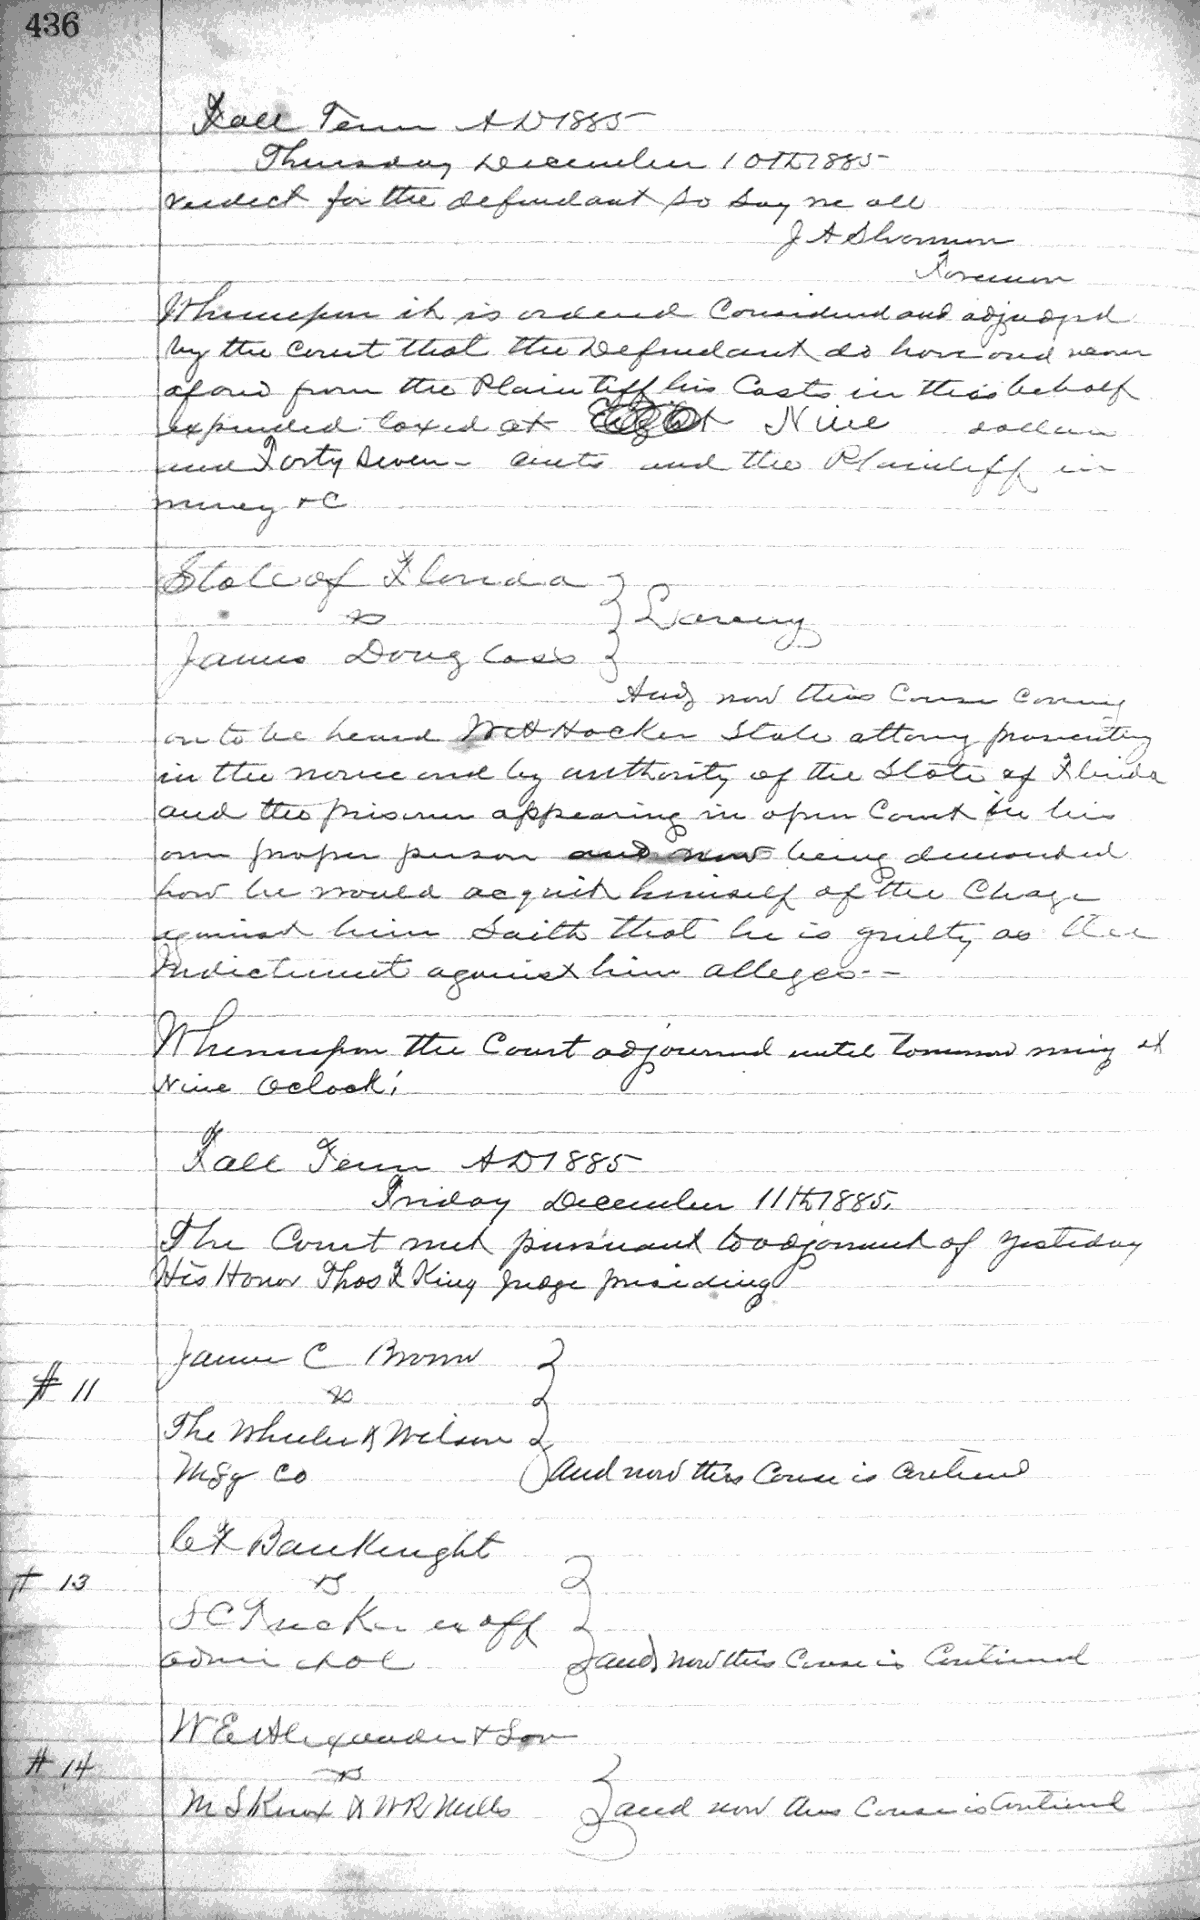 436
Fall Term AD 1885
Thursday December 10th 1885
verdict for the defendant So Say we all
J A
Foreman
Whereupon it is ordered Considered and adjudged
by the Court that the Defendant do have and recover
of and from the Plaintiff his Costs in this behalf
expended taxed at Nine dollars
and Forty Seven - cents and the Plaintiff in
mercy &C
State of Florida
vs
Larceny
James Douglass
And now this Cause coming
on to be heard W A Hocker State attorny prosecuting
in the name and by authority of the State of Florida
and the prisoner appearing in open Court in his
own proper person and now being demanded
how he would acquit himself of the Charge
against him Saith that he is guilty as the
Indictment against him alleges--
Whereupon the Court adjourned until Tomorrow morning at
Nine Oclock
Fall Term AD 1885
Friday December 11th 1885.
The Court met pursuant to adjournment of yesterday
His Honor Thos F King Judge presiding
# 11
James C Brown
vs
The Wheeler & Wilson
Mfg Co
and now this Cause is Continued
# 13
C F Bauknight
vs
S C Tucker ex off
admr et al
and now this Cause is Continued
# 14
W E Alexander & Son
vs
M S Knox & W R Mills
and now this Cause is Continued